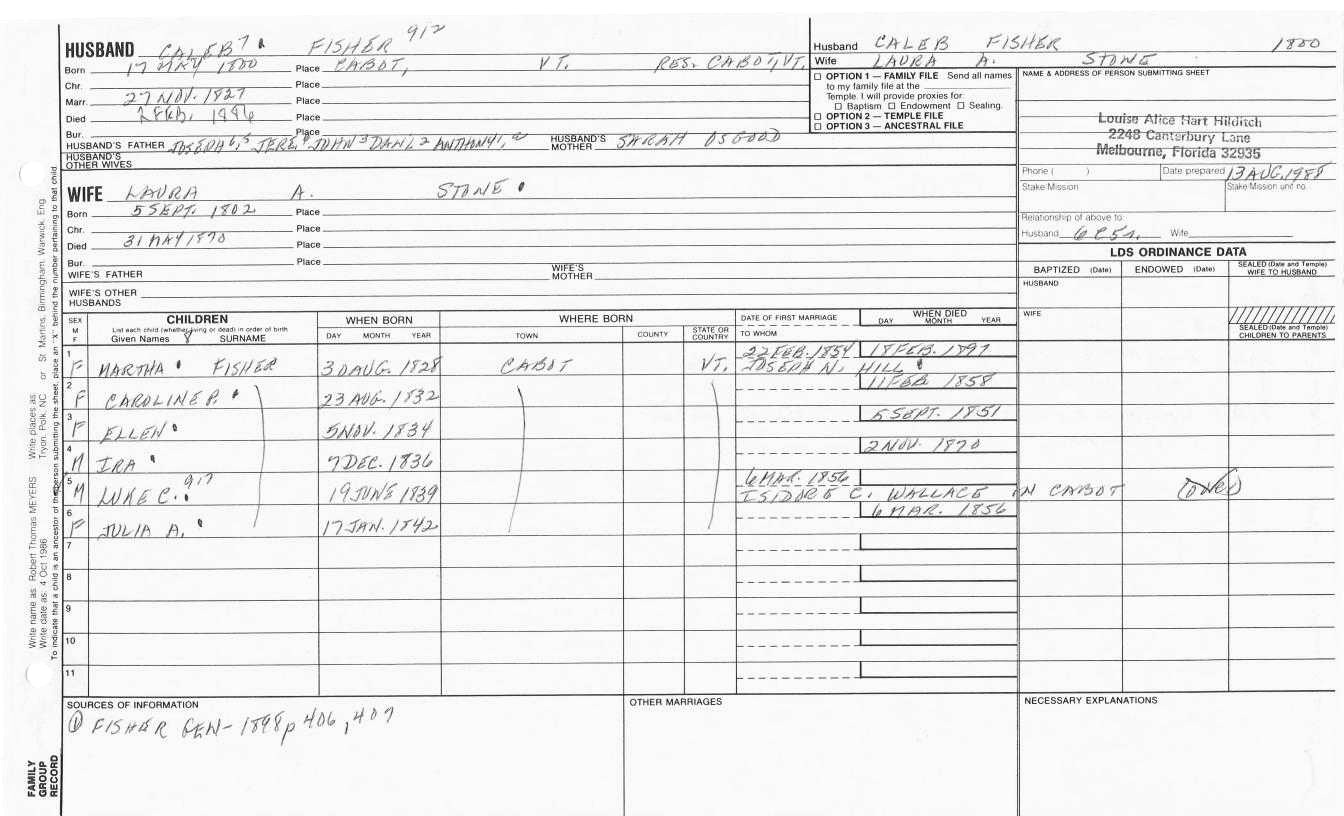 HUSBAND CALEB 7 FISHER 912
Born 17 MAY 1800 Place CABOT, VT. RES. CABOT, VT.
Chr. Place
Marr. 27 NOV. 1827 Place
Died 2 FEB. 1886 Place
Bur. Place
HUSBAND'S FATHER JOSEPH 6, 5 JERE, 4 JOHN 3 DANL 2 ANTHONY 1, HUSBAND'S MOTHER SARAH OSGOOD
HUSBAND'S OTHER WIVES
WIFE LAURA A. STONE
Born 5 SEPT. 1802 Place
Chr. Place
Died 31 MAY 1870 Place
Bur. Place
WIFE'S FATHER WIFE'S MOTHER
WIFE'S OTHER HUSBANDS
Husband CALEB FISHER 1800
Wife LAURA A. STONE
☐ OPTION 1 — FAMILY FILE Send all names
to my family file at the
Temple. I will provide proxies for:
☐ Baptism ☐ Endowment ☐ Sealing.
☐ OPTION 2 — TEMPLE FILE
☐ OPTION 3 — ANCESTRAL FILE
NAME & ADDRESS OF PERSON SUBMITTING SHEET
Louise Alice Hart Hilditch
2248 Canterbury Lane
Melbourne, Florida 32935
Phone ( ) Date prepared 13 AUG. 1988
Stake Mission Stake Mission unit no.
Relationship of above to:
Husband 6C5r. Wife
LDS ORDINANCE DATA
BAPTIZED (Date) ENDOWED (Date) SEALED (Date and Temple) WIFE TO HUSBAND
HUSBAND
WIFE
SEALED (Date and Temple) CHILDREN TO PARENTS
SEX M F
CHILDREN
List each child (whether living or dead) in order of birth
Given Names 8 SURNAME
WHEN BORN
DAY MONTH YEAR
WHERE BORN
TOWN COUNTY STATE OR COUNTRY
DATE OF FIRST MARRIAGE
TO WHOM
WHEN DIED
DAY MONTH YEAR
1 F MARTHA FISHER 30 AUG. 1828 CABOT VT. 22 FEB. 1854 18 FEB. 1897
JOSEPH N. HILL
2 F CAROLINE P. 23 AUG. 1832 11 FEB 1858
3 F ELLEN 5 NOV. 1834 5 SEPT. 1851
4 M IRA 7 DEC. 1836 2 NOV. 1870
5 M LUKE C. 917 19 JUNE 1839 6 MAR. 1856
ISIDORE C. WALLACE IN CABOT
6 F JULIA A. 17 JAN. 1842 6 MAR. 1856
7
8
9
10
11
SOURCES OF INFORMATION
① FISHER GEN- 1898 p 406, 407
OTHER MARRIAGES
NECESSARY EXPLANATIONS
Write name as: Robert Thomas MEYERS Write places as: Tryon, Polk, NC or St Martins, Birmingham, Warwick, Eng.
Write date as: 4 Oct 1986
To indicate that a child is an ancestor of the person submitting the sheet, place an "X" behind the number pertaining to that child
FAMILY GROUP RECORD